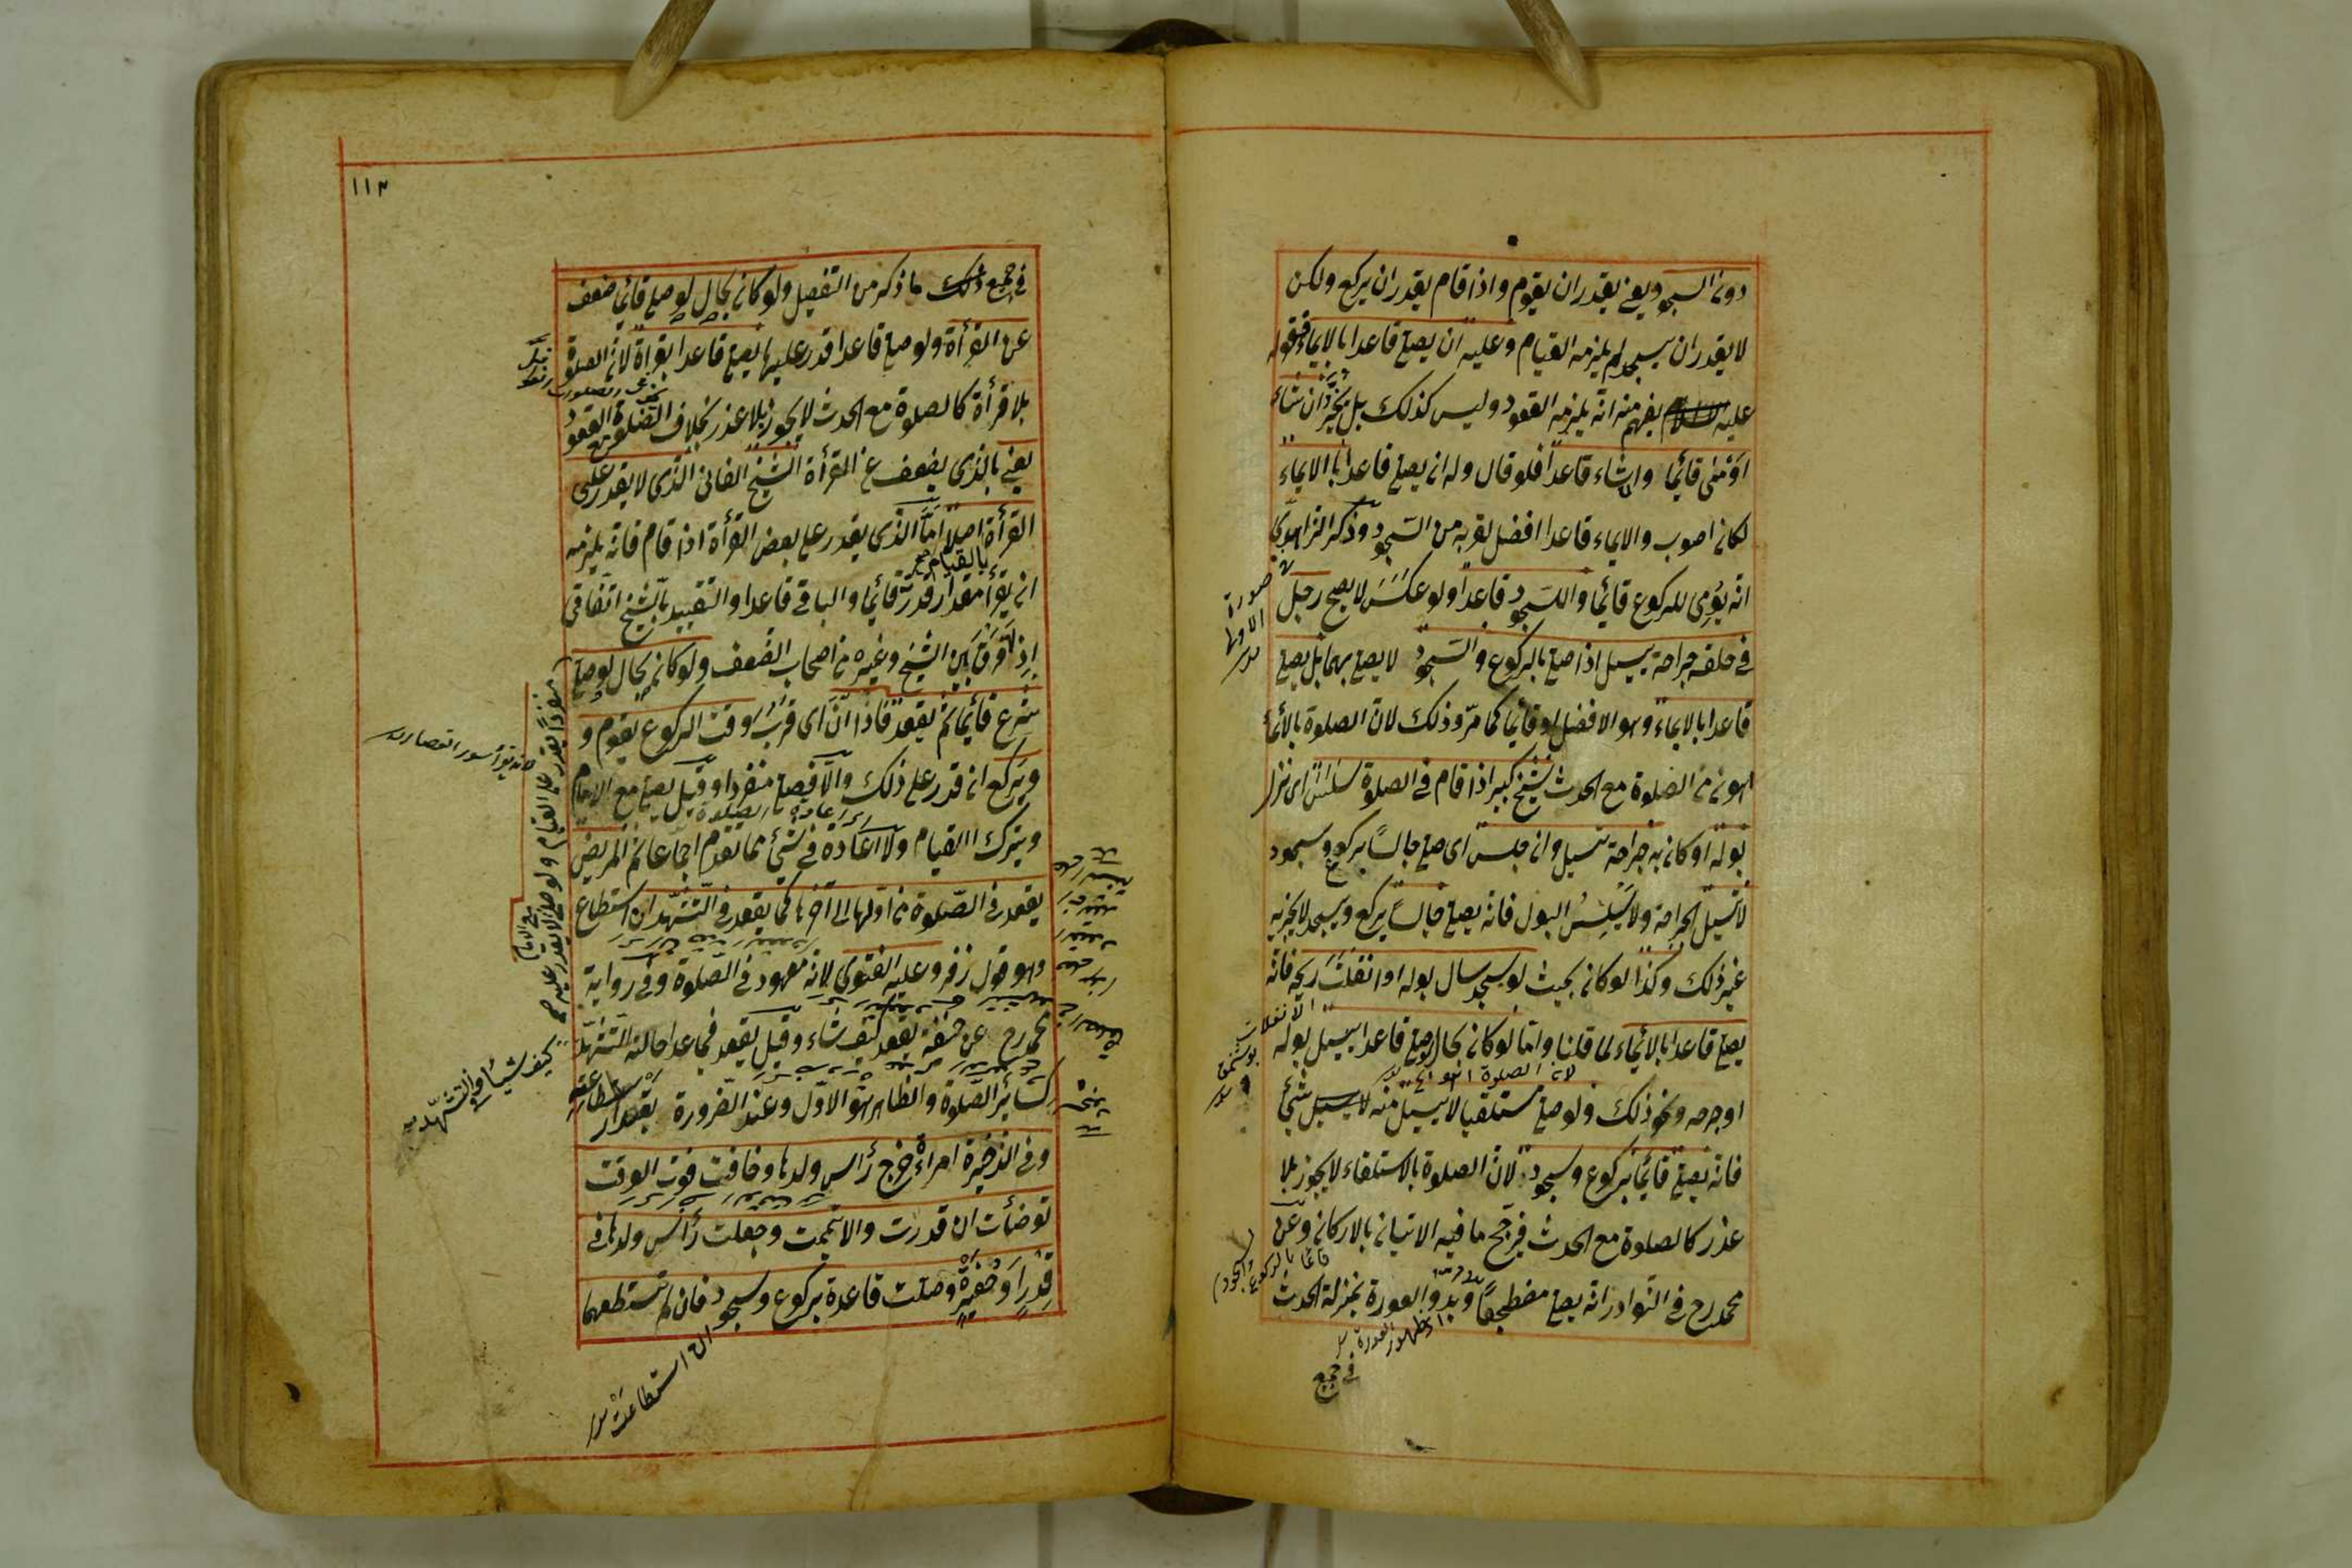 دون السجود يعني يقدر ان يقوم واذا قام يقدر ان يركع ولكن
لا يقدر ان يسجد لم يلزمه القيام وعليه ان يصلي قاعدا بالايماء فقوله
عليه يفهم منه انه يلزمه القعود وليس كذلك بل يخير ان شاء
اومئ قائما وان شاء قاعدا فلو قال وله ان يصلي قاعدا بالايماء
لكان اصوب والايماء قاعدا افضل لقربه من السجود وذكر الزاهدي
انه يومي للركوع قائما والسجود قاعدا ولو عكس لا يصح رجل
في حلقه جراحة يسيل اذا صلى بالركوع والسجود لا يصلي بهما بل يصلي
قاعدا بالايماء وهو الافضل او قائما كما مر وذلك لان الصلوة بالايماء
اهون من الصلوة مع الحدث شيخ كبير اذا قام في الصلوة سلس اى نزل
بوله او كان به جراحة تسيل وان جلس اى صلى جالسا بركوع وسجود
لا تسيل الجراحة ولا يسلس البول فانه يصلي جالسا يركع ويسجد لا يجزيه
غير ذلك وكذا لو كان بحيث لو سجد سال بوله او انفلت ريحه فانه
يصلي قاعدا بالايماء لما قلنا واما لو كان بحال لو صلى قاعدا يسيل بوله
او جرحه ونحو ذلك ولو صلى مستلقيا لا يسيل منه شئ
فانه يصلي قائما بركوع وسجود لان الصلوة بالاستلقاء لا يجوز بلا
عذر كالصلوة مع الحدث فيرجح ما فيه الاتيان بالاركان وعن
محمد رح في النوادر انه يصلي مضطجعا وبدو العورة بمنزلة الحدث
صورة الاولى
الانفلات
لان الصلوة
قائما بالركوع والسجود
اى ظهور العورة
في جميع
١١٣
في جميع ذلك ما ذكر من التفصيل ولو كان بحال لو صلى قائما ضعف
عن القرأة ولو صلى قاعدا قدر عليها يصلي قاعدا بقراة لان الصلوة
بلا قرأة كالصلوة مع الحدث لا يجوز بلا عذر بخلاف الصلوة مع القعود
يعني بالذى يضعف عن القرأة الشيخ الفاني الذى لا يقدر على
القرأة اصلا اما الذى يقدر على بعض القرأة اذا قام فانه يلزمه
بالقيام
ان يقرأ مقدار قدرته قائما والباقي قاعدا والتقييد بالشيخ اتفاقي
اذ لا فرق بين الشيخ وغيره من اصحاب الضعف ولو كان بحال لو صلى
منفردا يقدر على القيام ولو صلى مع الامام لا يقدر عليه
شرع قائما ثم يقعد فاذا آن اى قرب وقت الركوع يقوم و
ويركع ان قدر على ذلك والا فيصلي منفردا وقيل يصلي مع الامام
ويترك القيام ولا اعادة في شئ مما تقدم اجماعا ثم المريض
يقعد في الصلوة من اولها الى آخرها كما يقعد في التشهد ان استطاع
وهو قول زفر وعليه الفتوى لانه معهود في الصلوة وفي رواية
محمد رح عن يقعد كيف شاء وقيل يقعد فيما عدا حالة التشهد
كيف شاء وفي التشهد
كسائر الصلوة والظاهر هو الاول وعند الضرورة بقدر استطاعته
وفي الذخيرة امراة خرج رأس ولدها وخافت فوت الوقت
توضأت ان قدرت والا تيممت وجعلت رأس ولدها في
قدر او حفيرة وصلت قاعدة بركوع وسجود فان لم تستطعهما
ان استطاعت